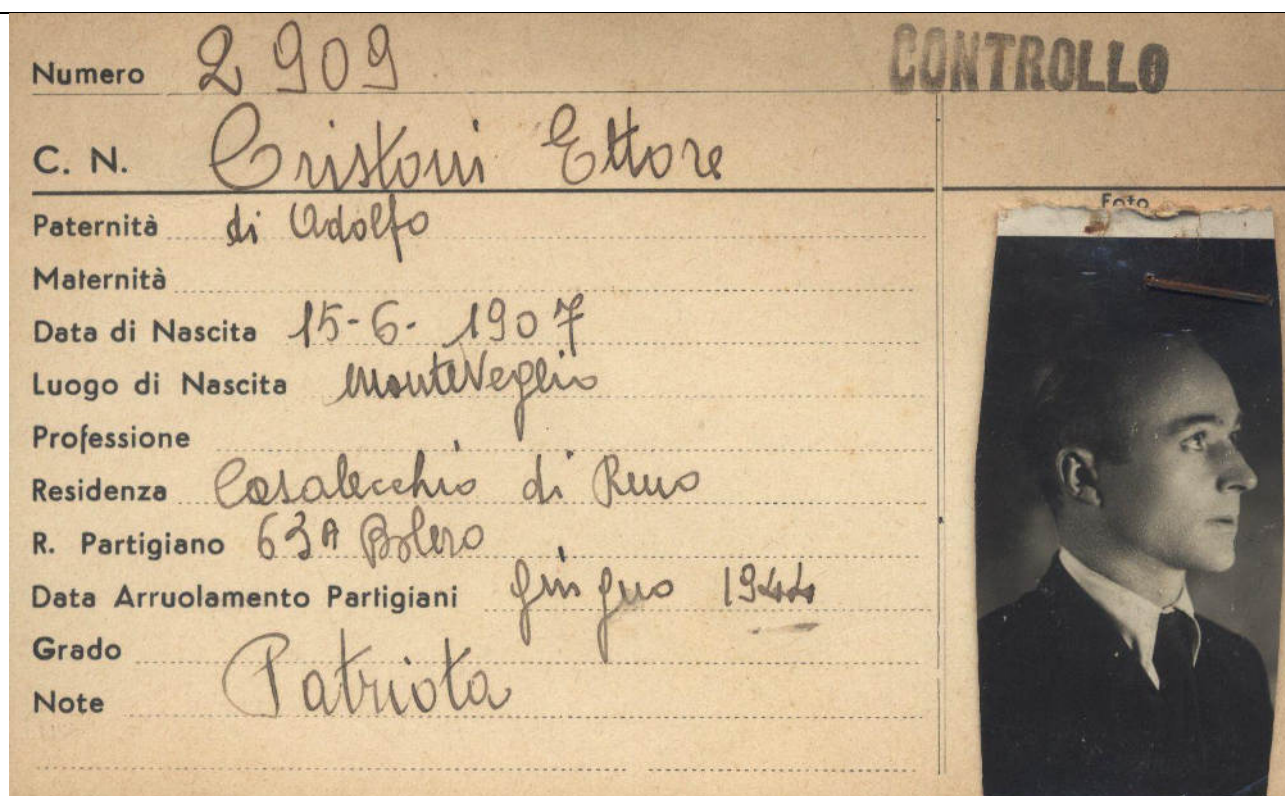 Numero 2909
CONTROLLO
C. N. Cristoni Ettore
Foto
Paternità di Adolfo
Maternità
Data di Nascita 15-6-1907
Luogo di Nascita MonteVeglio
Professione
Residenza Casalecchio di Reno
R. Partigiano 63A Bolero
Data Arruolamento Partigiani giugno 1944
Grado
Note Patriota